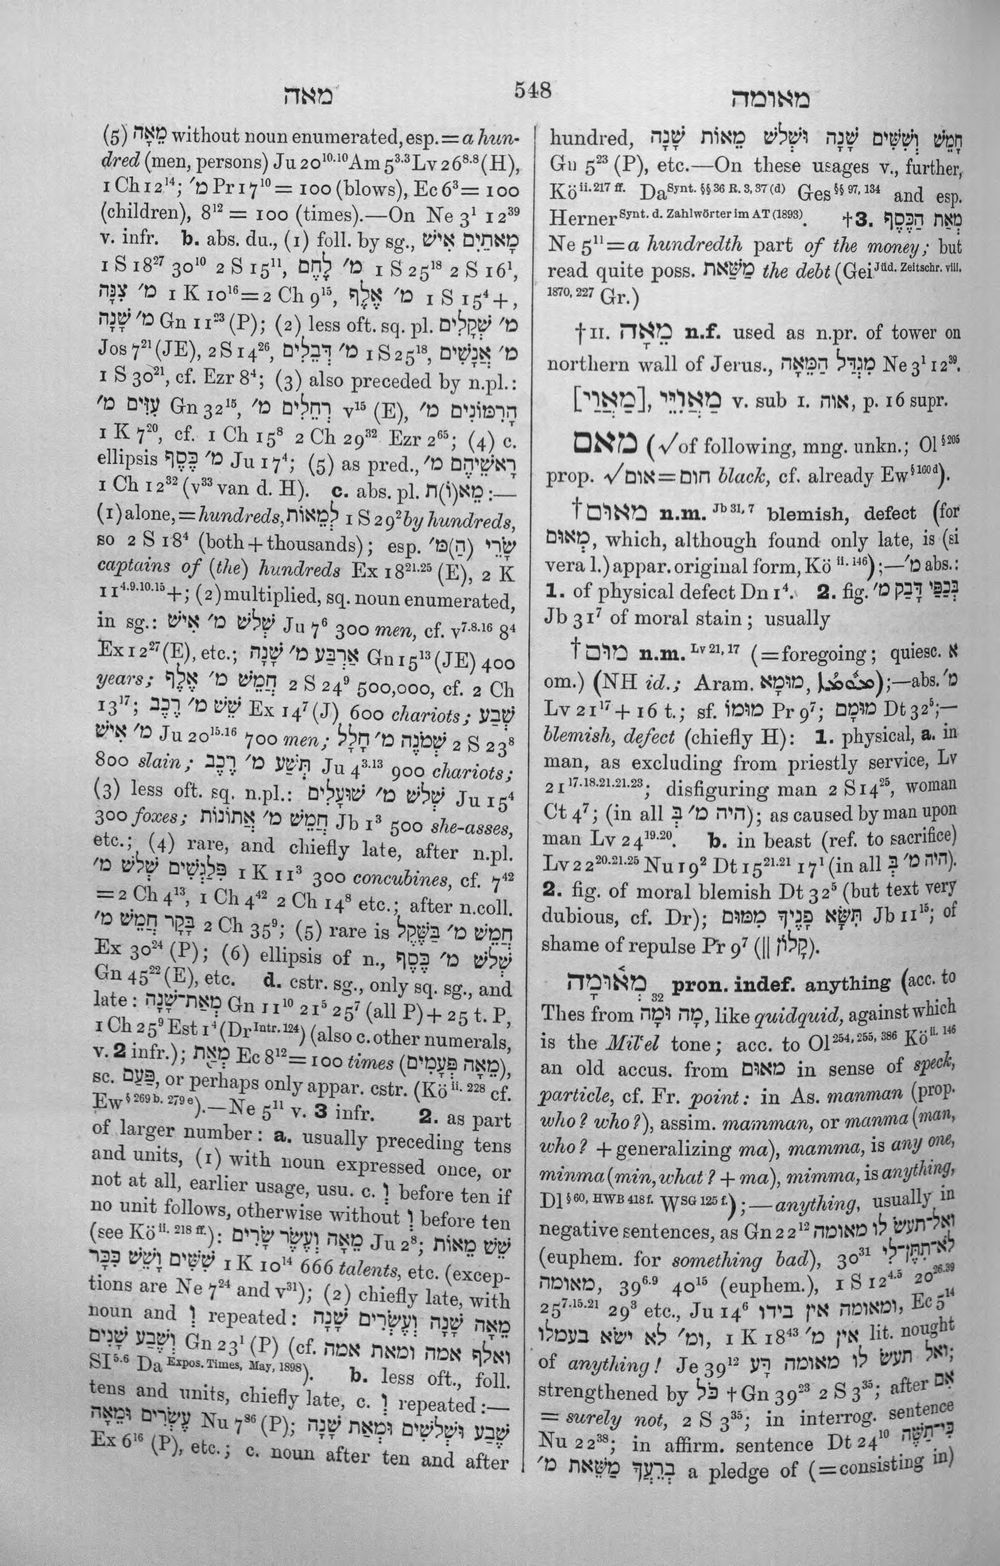 מאה
548
מאומה
(5) מֵאָה without noun enumerated, esp. = a hun-
dred (men, persons) Ju 20¹⁰·¹⁰ Am 5³·³ Lv 26⁸·⁸ (H),
1 Ch 12¹⁴; מ׳ Pr 17¹⁰ = 100 (blows), Ec 6³ = 100
(children), 8¹² = 100 (times).—On Ne 3¹ 12³⁹
v. infr. b. abs. du., (1) foll. by sg., מָאתַיִם אִישׁ
1 S 18²⁷ 30¹⁰ 2 S 15¹¹, מ׳ לֶחֶם 1 S 25¹⁸ 2 S 16¹,
מ׳ צִנָּה 1 K 10¹⁶ = 2 Ch 9¹⁵, מ׳ אֶלֶף 1 S 15⁴ +,
מ׳ שָׁנָה Gn 11²³ (P); (2) less oft. sq. pl. מ׳ שְׁקָלִים
Jos 7²¹ (JE), 2 S 14²⁶, מ׳ דְּבֵלִים 1 S 25¹⁸, מ׳ אֲנָשִׁים
1 S 30²¹, cf. Ezr 8⁴; (3) also preceded by n.pl.:
עִזִּים מ׳ Gn 32¹⁵, רְחֵלִים מ׳ v¹⁵ (E), הָרִמּוֹנִים מ׳
1 K 7²⁰, cf. 1 Ch 15⁸ 2 Ch 29³² Ezr 2⁶⁵; (4) c.
ellipsis מ׳ כֶּסֶף Ju 17⁴; (5) as pred., רָאשֵׁיהֶם מ׳
1 Ch 12³² (v³³ van d. H). c. abs. pl. מֵא(וֹ)ת :—
(1) alone, = hundreds, לְמֵאוֹת 1 S 29² by hundreds,
so 2 S 18⁴ (both + thousands); esp. שָׂרֵי (הַ)מ׳
captains of (the) hundreds Ex 18²¹·²⁵ (E), 2 K
11⁴·⁹·¹⁰·¹⁵ +; (2) multiplied, sq. noun enumerated,
in sg.: שְׁלֹשׁ מ׳ אִישׁ Ju 7⁶ 300 men, cf. v⁷·⁸·¹⁶ 8⁴
Ex 12²⁷ (E), etc.; אַרְבַּע מ׳ שָׁנָה Gn 15¹³ (JE) 400
years; חֲמֵשׁ מ׳ אֶלֶף 2 S 24⁹ 500,000, cf. 2 Ch
13¹⁷; שֵׁשׁ מ׳ רֶכֶב Ex 14⁷ (J) 600 chariots; שְׁבַע
מ׳ אִישׁ Ju 20¹⁵·¹⁶ 700 men; שְׁמֹנֶה מ׳ חָלָל 2 S 23⁸
800 slain; תְּשַׁע מ׳ רֶכֶב Ju 4³·¹³ 900 chariots;
(3) less oft. sq. n.pl.: שְׁלֹשׁ מ׳ שׁוּעָלִים Ju 15⁴
300 foxes; חֲמֵשׁ מ׳ אֲתוֹנוֹת Jb 1³ 500 she-asses,
etc.; (4) rare, and chiefly late, after n.pl.
פִּלַגְשִׁים שְׁלֹשׁ מ׳ 1 K 11³ 300 concubines, cf. 7⁴²
= 2 Ch 4¹³, 1 Ch 4⁴² 2 Ch 14⁸ etc.; after n.coll.
בָּקָר חֲמֵשׁ מ׳ 2 Ch 35⁹; (5) rare is חֲמֵשׁ מ׳ בַּשֶּׁקֶל
Ex 30²⁴ (P); (6) ellipsis of n., שְׁלֹשׁ מ׳ כֶּסֶף
Gn 45²² (E), etc. d. cstr. sg., only sq. sg., and
late: מְאַת־שָׁנָה Gn 11¹⁰ 21⁵ 25⁷ (all P) + 25 t. P,
1 Ch 25⁹ Est 1⁴ (Dr Intr. 124) (also c. other numerals,
v. 2 infr.); מְאַת Ec 8¹² = 100 times (מֵאָה פְעָמִים),
sc. פַּעַם, or perhaps only appar. cstr. (Kö ii. 228 cf.
Ew § 269 b. 279 e).—Ne 5¹¹ v. 3 infr. 2. as part
of larger number: a. usually preceding tens
and units, (1) with noun expressed once, or
not at all, earlier usage, usu. c. וְ before ten if
no unit follows, otherwise without וְ before ten
(see Kö ii. 218 ff.): מֵאָה וְעֶשֶׂר שָׂרִים Ju 2⁸; שֵׁשׁ מֵאוֹת
שִׁשִּׁים וָשֵׁשׁ כִּכַּר 1 K 10¹⁴ 666 talents, etc. (excep-
tions are Ne 7²⁴ and v³¹); (2) chiefly late, with
noun and וְ repeated: מֵאָה שָׁנָה וְעֶשְׂרִים שָׁנָה
וְשֶׁבַע שָׁנִים Gn 23¹ (P) (cf. ואלף אמה ומאת אמה
SI⁵·⁶ Da Expos. Times, May, 1898). b. less oft., foll.
tens and units, chiefly late, c. וְ repeated:—
עֶשְׂרִים וּמֵאָה Nu 7⁸⁶ (P); שֶׁבַע וּשְׁלֹשִׁים וּמְאַת שָׁנָה
Ex 6¹⁶ (P), etc.; c. noun after ten and after
hundred, חָמֵשׁ וְשִׁשִּׁים שָׁנָה וּשְׁלֹשׁ מֵאוֹת שָׁנָה
Gn 5²³ (P), etc.—On these usages v., further,
Kö ii. 217 ff. Da Synt. §§ 36 R. 3, 37 (d) Ges §§ 97, 134 and esp.
Herner Synt. d. Zahlwörter im AT (1893). †3. מְאַת הַכֶּסֶף
Ne 5¹¹ = a hundredth part of the money; but
read quite poss. מַשַּׁאת the debt (Gei Jüd. Zeitschr. viii,
1870, 227 Gr.)
†II. מֵאָה n.f. used as n.pr. of tower on
northern wall of Jerus., מִגְדַּל הַמֵּאָה Ne 3¹ 12³⁹.
[מַאֲוַי], מַאֲוַיֵּי v. sub I. אוה, p. 16 supr.
מאם (√ of following, mng. unkn.; Ol § 205
prop. √אום = חום black, cf. already Ew § 100 d).
†מְאוּם n.m. Jb 31, 7 blemish, defect (for
מְאוּם, which, although found only late, is (si
vera l.) appar. original form, Kö ii. 146);—מ׳ abs.:
1. of physical defect Dn 1⁴. 2. fig. בְּכַפַּי דָּבַק מ׳
Jb 31⁷ of moral stain; usually
†מוּם n.m. Lv 21, 17 (= foregoing; quiesc. א
om.) (NH id.; Aram. מוּמָא, ܡܘܡܐ);—abs. מ׳
Lv 21¹⁷ + 16 t.; sf. מוּמוֹ Pr 9⁷; מוּמָם Dt 32⁵;—
blemish, defect (chiefly H): 1. physical, a. in
man, as excluding from priestly service, Lv
21¹⁷·¹⁸·²¹·²¹·²³; disfiguring man 2 S 14²⁵, woman
Ct 4⁷; (in all היה מ׳ בְּ); as caused by man upon
man Lv 24¹⁹·²⁰. b. in beast (ref. to sacrifice)
Lv 22²⁰·²¹·²⁵ Nu 19² Dt 15²¹·²¹ 17¹ (in all היה מ׳ בְּ).
2. fig. of moral blemish Dt 32⁵ (but text very
dubious, cf. Dr); תִּשָּׂא פָנֶיךָ מִמּוּם Jb 11¹⁵; of
shame of repulse Pr 9⁷ (|| קָלוֹן).
מְאוּמָה 32 pron. indef. anything (acc. to
Thes from מָה וּמָה, like quidquid, against which
is the Mil‘el tone; acc. to Ol 254, 255, 386 Kö ii. 146
an old accus. from מאום in sense of speck,
particle, cf. Fr. point: in As. manman (prop.
who? who?), assim. mamman, or manma (man,
who? + generalizing ma), mamma, is any one,
minma (min, what? + ma), mimma, is anything,
Dl § 60, HWB 418 f. WSG 125 f.);—anything, usually in
negative sentences, as Gn 22¹² ואל־תעש לו מאומה
(euphem. for something bad), 30³¹ לא־תתן־לי
מאומה, 39⁶·⁹ 40¹⁵ (euphem.), 1 S 12⁴·⁵ 20²⁶·³⁹
25⁷·¹⁵·²¹ 29³ etc., Ju 14⁶ ומאומה אין בידו, Ec 5¹⁴
ומ׳ לא ישא בעמלו, 1 K 18⁴³ אין מ׳ lit. nought
of anything! Je 39¹² ואל תעש לו מאומה רָּע;
strengthened by כֹּל † Gn 39²³ 2 S 3³⁵; after אם
= surely not, 2 S 3³⁵; in interrog. sentence
Nu 22³⁸; in affirm. sentence Dt 24¹⁰ כִּי־תַשֶּׁה
בְרֵעֲךָ מַשַּׁאת מ׳ a pledge of (= consisting in)